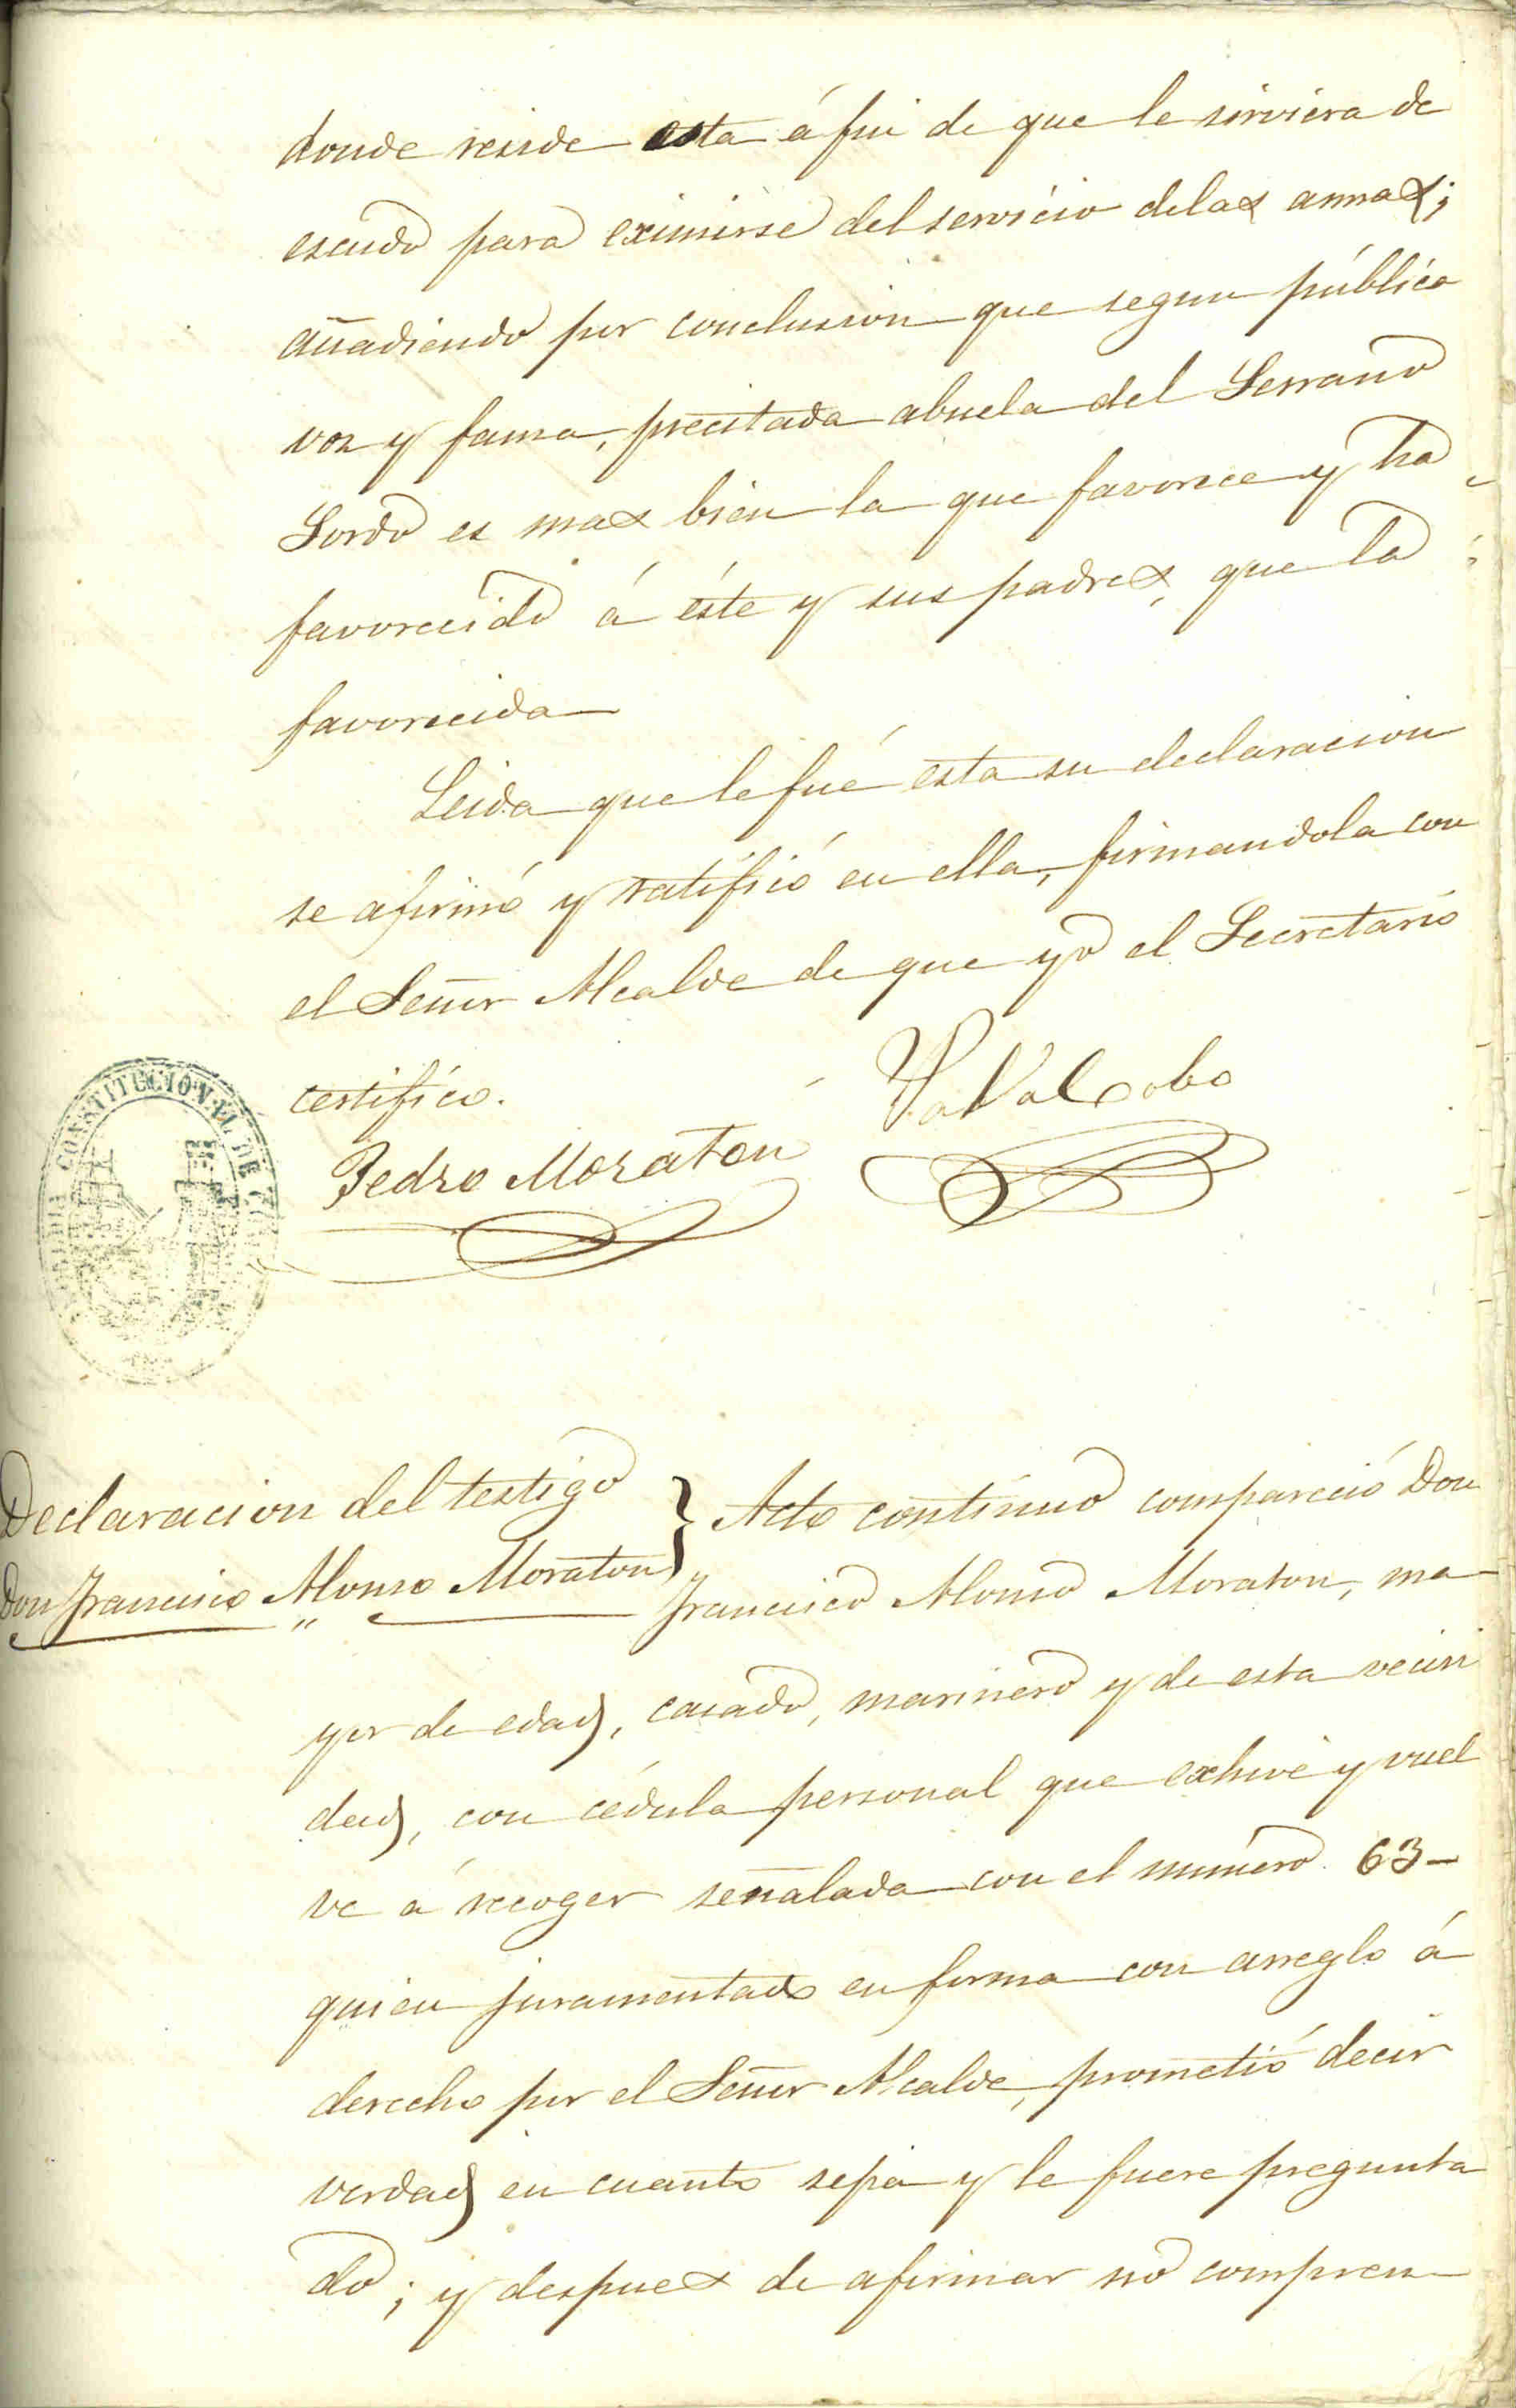 donde reside esta á fin de que le sirviera de
escudo para eximirse del servicio de las armas;
añadiendo por conclusion que segun pública
voz y fama, precitada abuela del Serrano
Sordo es mas bien la que favorece y ha
favorecido á éste y sus padres, que la
favorecida
Leida que le fué esta su declaracion
se afirmó y ratificó en ella, firmandola con
el Señor Alcalde de que yo el Secretario
certifico.
Pedro Moraton
CONSTITUCIONAL DE
Declaracion del testigo
Don Francisco Alonso Moraton
Acto continuo compareció Don
Francisco Alonso Moraton, ma
yor de edad, casado, marinero y de esta vecin
dad, con cédula personal que exhive y vuel
ve á recoger señalada con el número 63-
quien juramentado en forma con arreglo á
derecho por el Señor Alcalde, prometió decir
verdad en cuanto sepa y le fuere pregunta
do; y despues de afirmar no compren